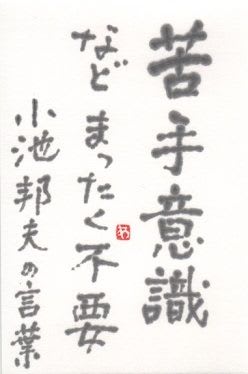 苦手意識
など まったく不要
小池邦夫の言葉